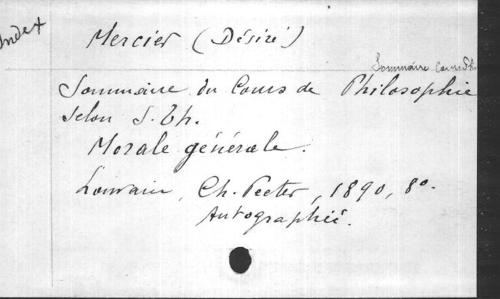 Index
Mercier (Désiré)
Sommaire Cours
Sommaire du Cours de Philosophie
selon S. Th.
Morale générale.
Louvain, Ch. Peeter, 1890, 8o.
Autographié.